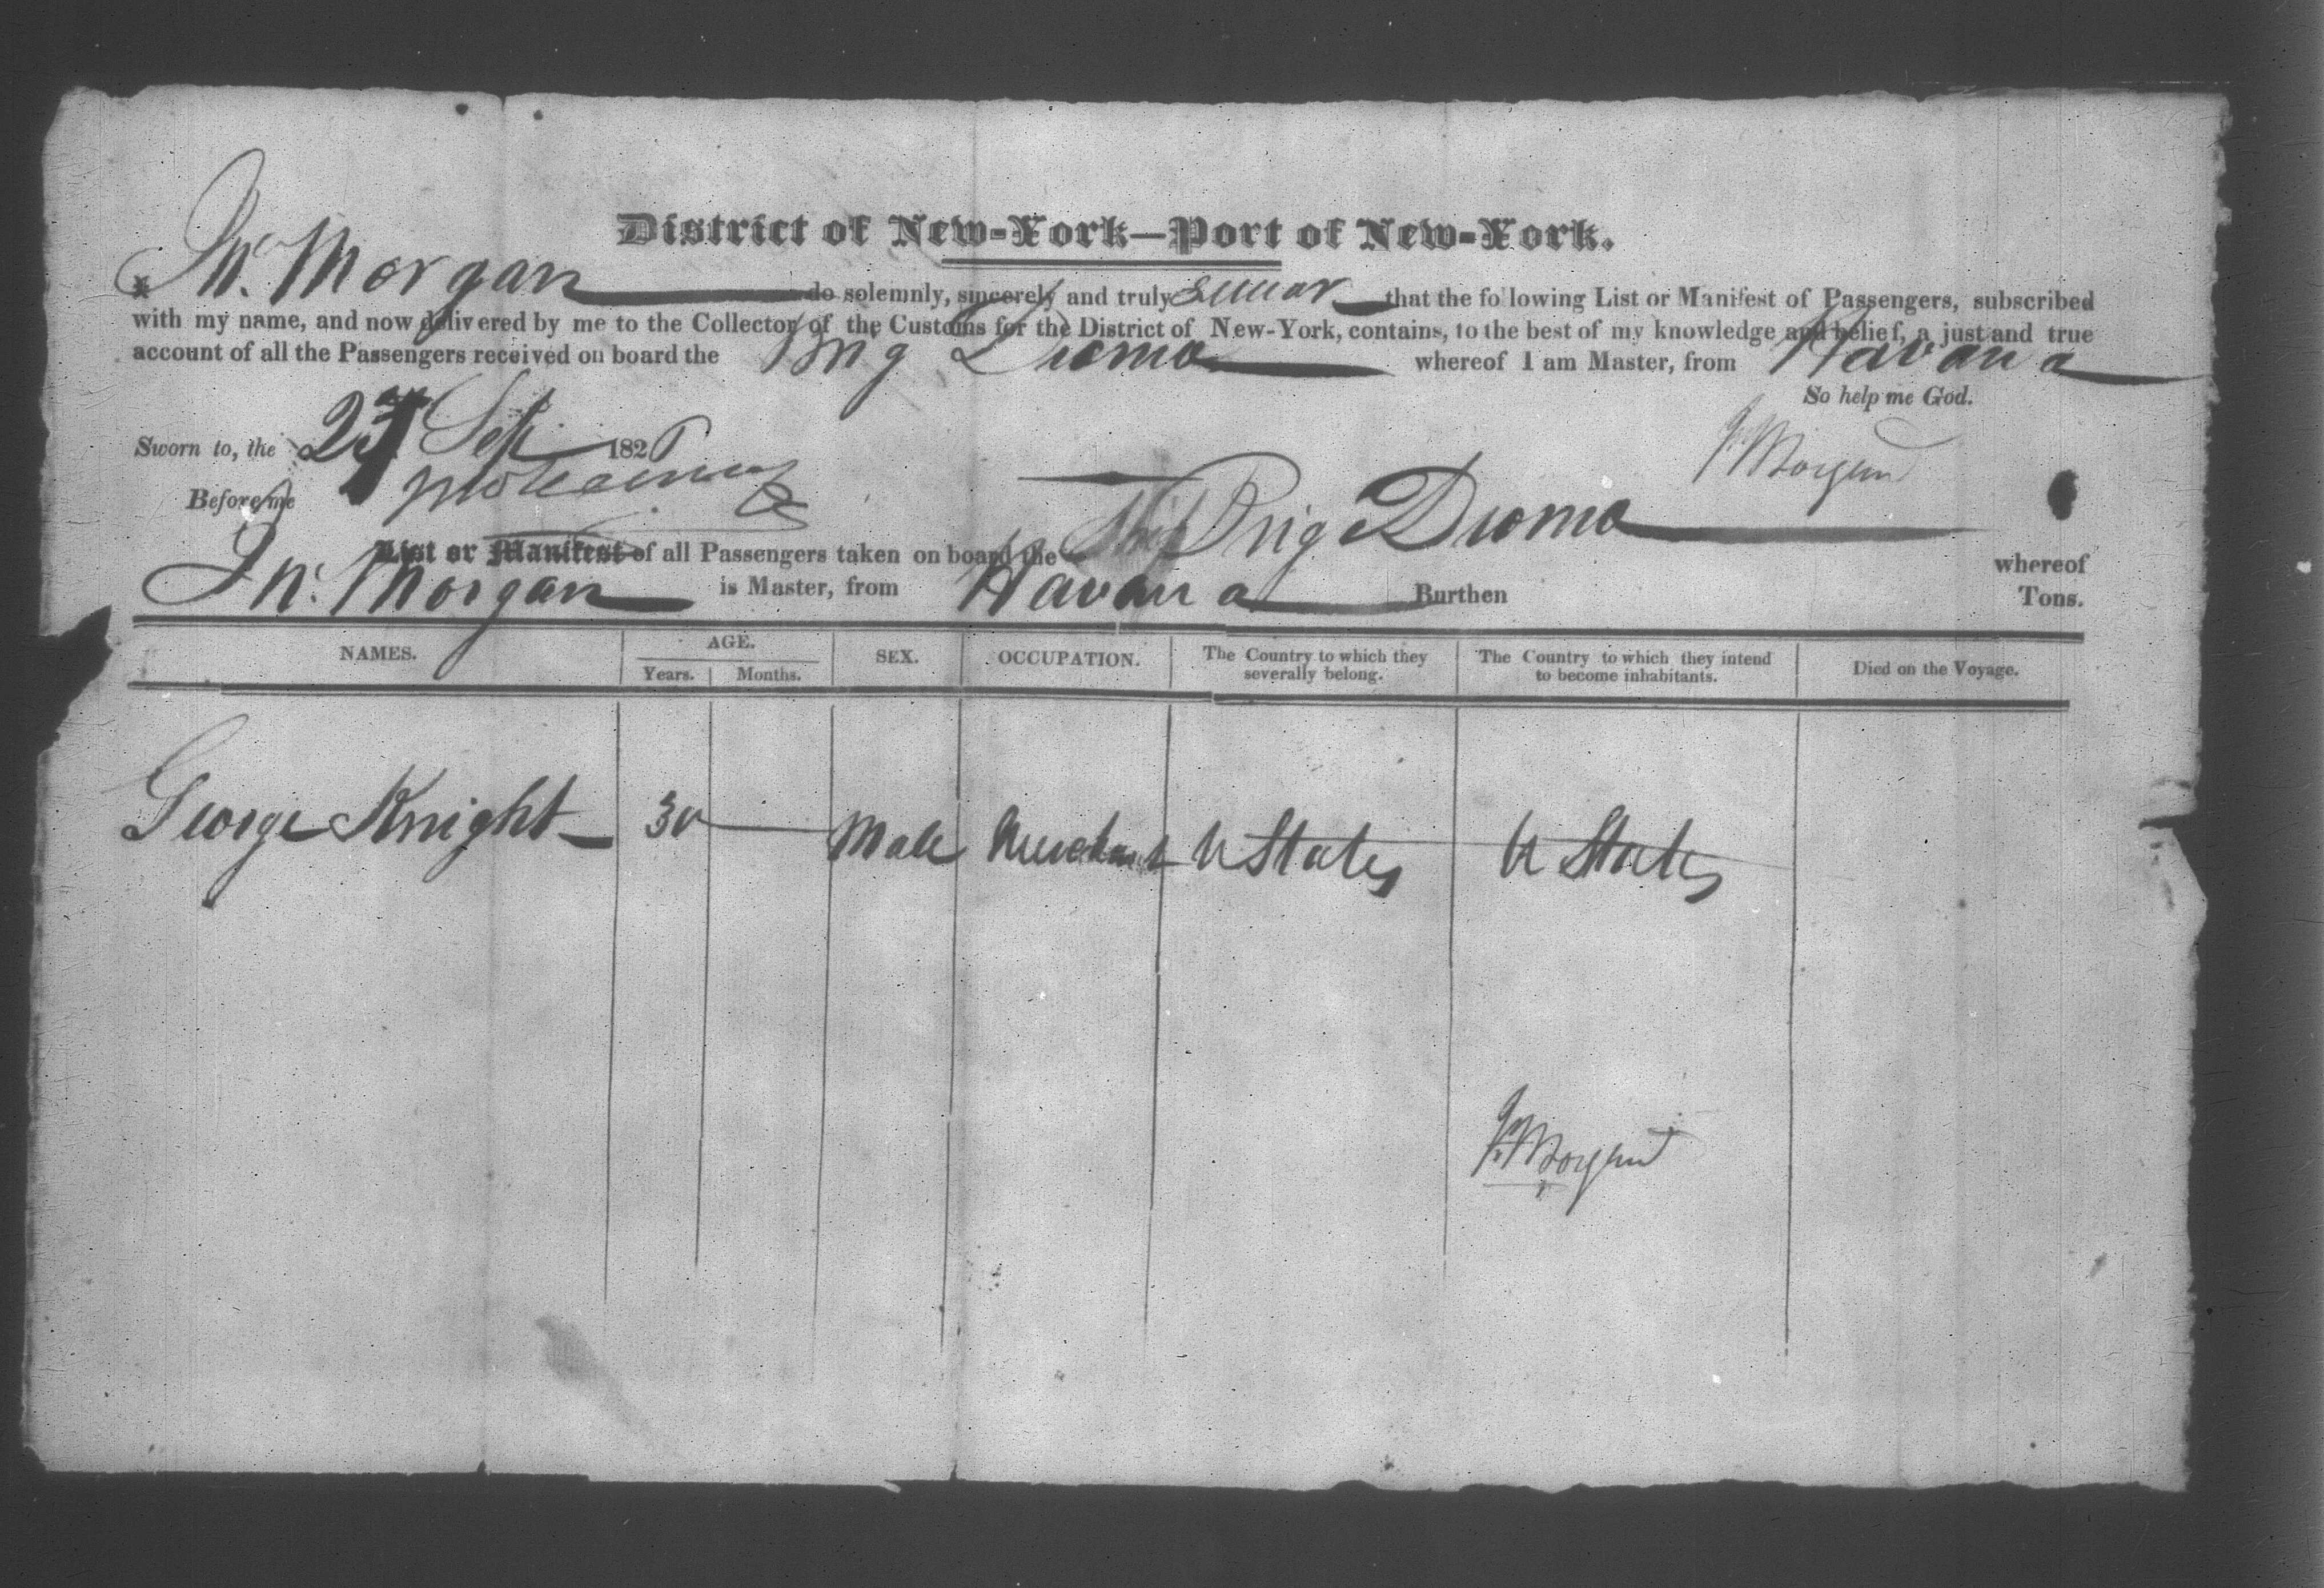 District of New-York—Port of New-York.
I Jn. Morgan do solemnly, sincerely and truly swear that the following List or Manifest of Passengers, subscribed
with my name, and now delivered by me to the Collector of the Customs for the District of New-York, contains, to the best of my knowledge and belief, a just and true
account of all the Passengers received on board the Brig whereof I am Master, from Havana
So help me God.
Sworn to, the Sep 182
Jn Morgan
Before me
List or Manifest of all Passengers taken on board the Brig whereof
Jn. Morgan is Master, from Havana Burthen Tons.
NAMES. AGE. Years. Months. SEX. OCCUPATION. The Country to which they severally belong. The Country to which they intend to become inhabitants. Died on the Voyage.
George Knight 30 Male Merchant U States U States
Jn Morgan